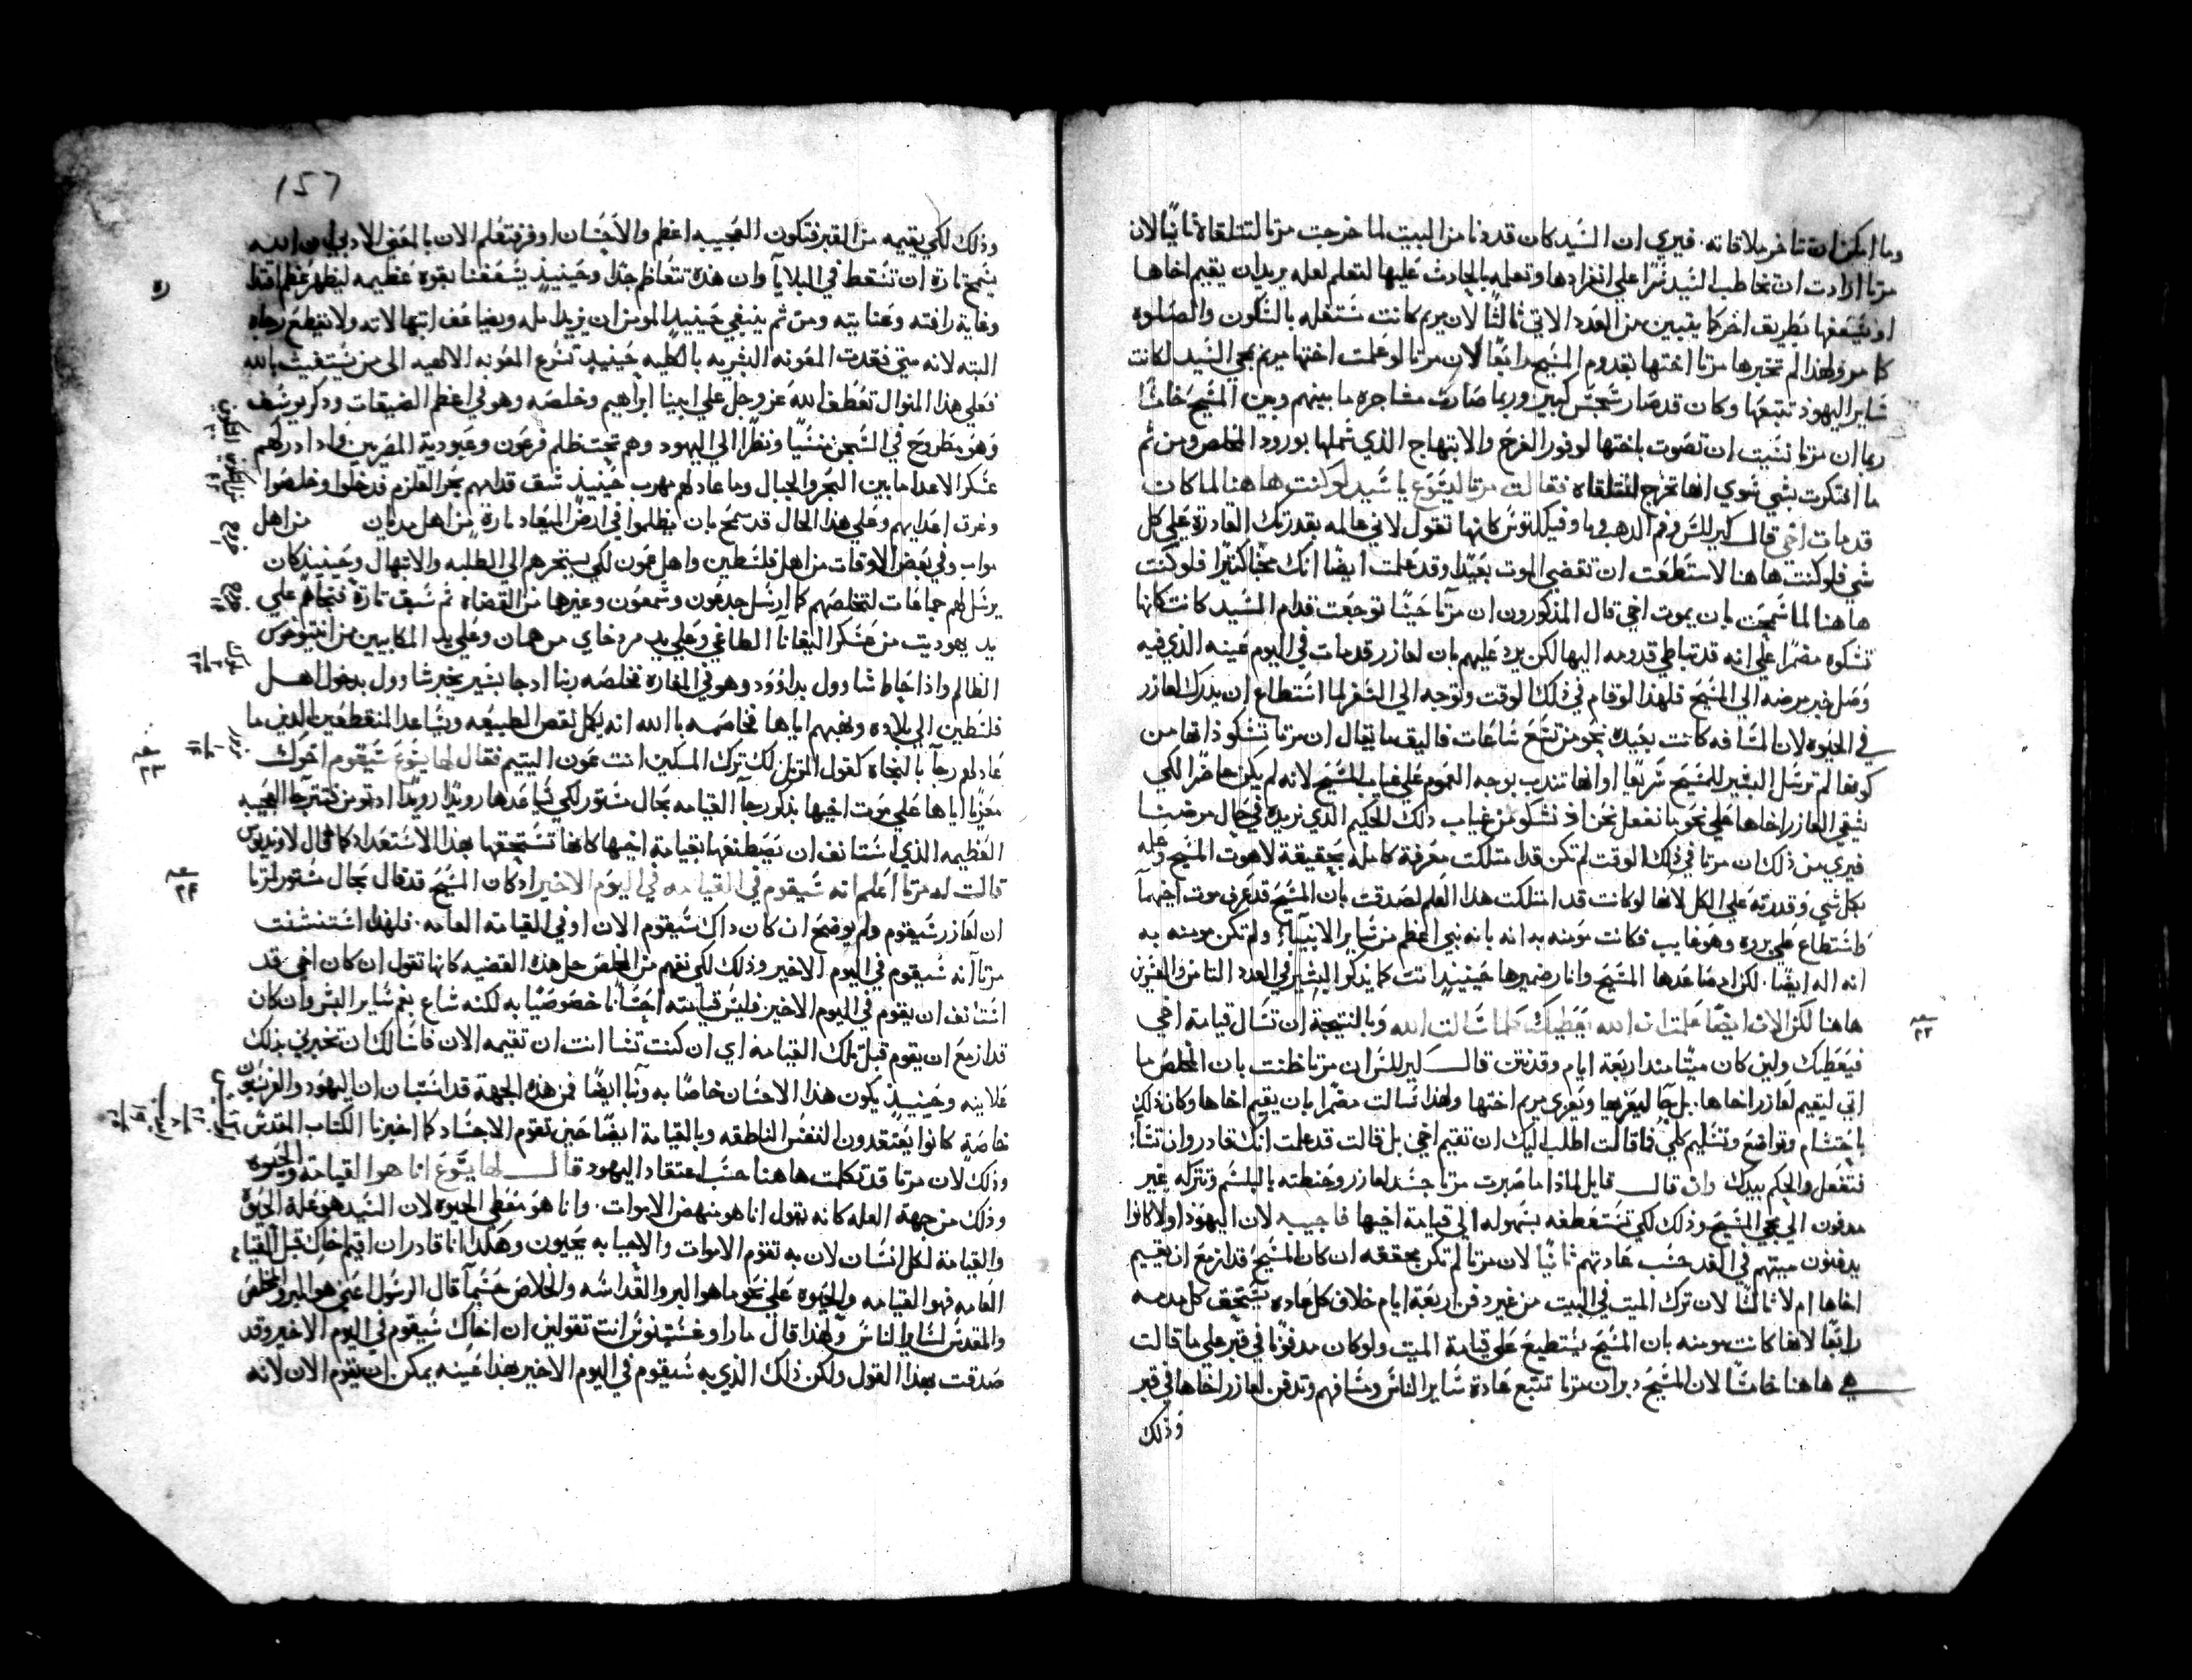 وما امكن ان تتاخر ملاقاته. فيري ان السيد كان قد دنا من البيت لما خرجت مرتا لتتلقاه ثانيًا لان
مرتا ارادت ان تخاطب السيد سرًا علي انفرادها وتعلمه بالحادث عليها لتعلم لعله يريد ان يقيم اخاها
او يشفعها بطريق اخر كما يتبين من العدد الاتي ثالثًا لان مريم كانت مشتغله بالسكون والصلوه
كما مر ولهذا لم تخبرها مرتا اختها بقدوم المسيح رابعًا لان مرتا لو علمت اختها مريم بمجي السيد لكانت
ساير اليهود تتبعها وكان قد صار سجس كبير وربما صارت مشاجره ما بينهم وبين المسيح خامسًا
ربما ان مرتا نسيت ان تصوت باختها لوفور الفرح والابتهاج الذي شملها بورود المخلص ومن ثم
ما افتكرت بشي سوي انها تخرج لتتلقاه فقالت مرتا ليسوع يا سيد لو كنت هاهنا لما كان
قد مات اخي قال كيرللس وفم الدهب و تاوفيلكتوس كانها تقول لاني عالمه بقدرتك القادرة علي كل
شي فلو كنت هاهنا لاستطعت ان تقصي الموت بعيدًا وقد علمت ايضًا انك محبًا كثيرًا فلو كنت
هاهنا لما سمحت بان يموت اخي قال المذكورون ان مرتا حسنًا توجعت قدام السيد كانت كانها
تشكوه مضمرًا علي انه قد تباطي قدومه اليها لكن يرد عليهم بان لعازر قد مات في اليوم عينه الذي فيه
وصل خبر مرضه الي المسيح فلهذا لو قام في ذلك الوقت وتوجه الي السفر لما استطاع ان يدرك لعازر
في الحيوه لان المسافه كانت بعيده نحو من تسع ساعات فاليق ما يقال ان مرتا تشكو ذاتها من
كونها لم ترسل البشير للمسيح سريعًا او انها تندب بوجه العموم علي غياب المسيح لانه لم يكن حاضرًا لكي
يشفي لعازر اخاها علي نحو ما نفعل نحن اذ نشكو من غياب ذلك الحكيم الذي نريده في حال مرضنا
فيري من ذلك ان مرتا في ذلك الوقت لم تكن قد امتلكت معرفة كامله بحقيقة لاهوت المسيح وعلمه
بكل شي وقدرته علي الكل لانها لو كانت قد امتلكت هذا العلم لصدقت بان المسيح قد عرف موت اخيها
واستطاع علي برؤه وهو غايب فكانت مومنه به انه بانه نبي اعظم من ساير الانبياء ولم تكن مومنه به
انه اله ايضًا. لكن اذ ساعدها المسيح وانار ضميرها حينيذٍ انت كما يذكر البشير في العدد الثامن والعشرين
هاهنا لكن الان ايضًا علمت ان الله يعطيك كلما سالت الله وبالنتيجة ان تسال قيامة اخي
فيعطيك ولين كان ميتًا منذ اربعة ايام وقد نتن قال كيرللس ان مرتا ظنت بان المخلص ما
اتي ليقيم لعازر اخاها. بل جا ليعزيها ويعزي مريم اختها ولهذا سالت مضمرًا بان يقيم اخاها وكان ذلك
باحتشام وتواضع وتسليم كلي فما قالت اطلب اليك ان تقيم اخي بل قالت قد علمت انك قادر وان تشآ
فتفعل والحكم بيدك وان قال قايل لماذا ما صبرت مرتا جسد لعازر وحنطته بالبلسم وتتركه غير
مدفون الي مجي المسيح وذلك لكي تستعطفه بسهوله الي قيامة اخيها فاجيبه لان اليهود اولًا كانوا
يدفنون ميتهم في الغد حسب عادتهم ثانيًا لان مرتا لم تكن محققه ان كان المسيح قد ازمع ان يقيم
اخاها ام لا ثالثًا لان ترك الميت في البيت من غير دفن اربعة ايام خلاف كل عاده يستحق كل مذمه
رابعًا لانها كانت مومنه بان المسيح يستطيع علي قيامة الميت ولو كان مدفونًا في قبر علي ما قالت
هي هاهنا خامسًا لان المسيح دبر ان مرتا تتبع عادة ساير الناس ومسافهم وتدفن لعازر اخاها في قبر
وذلك
سـ ٢٢
157
وذلك لكي يقيمه من القبر فتكون العجيبه اعظم والاحسان اوفر فتعلم الان بالمعني الادبي ان الله
يسمح تارة ان نسقط في البلايا وان هذه تتعاظم جدًا وحينيذٍ يسعفنا بقوة عظيمه ليظهر عظم اقتدا
ره
وغاية رافته وعنايته ومن ثم ينبغي حينيذ المومن ان يزيد امله ويضاعف ابتهالاته ولا تقطع رجاه
البته لانه متي فقدت المعونه البشريه بالكليه حينيذٍ تسرع المعونه الالهيه الي من يستغيث بالله
فعلي هذا المنوال تعطف الله عز وجل علي ابينا ابراهيم وخلصه وهو في اعظم الضيقات وذكر يوسف
وهو مطروح في السجن منسيًا ونظرًا الي اليهود وهم تحت ظلم فرعون وعبودية المصريين واذ ادركهم
عسكر الاعدا ما بين البحر والجبال وما عاد لهم مهرب حينيذٍ شق قدامهم بحر القلزم فدخلوا وخلصوا
وغرق اعدايهم وعلي هذا الحال قد سمح بان يظلموا في ارض الميعاد تارة من اهل مديان من اهل
مواب وفي بعض الاوقات من اهل فلسطين واهل عمون لكي يستجرهم الي الطلبه والابتهال وحينيذ كان
يرسل لهم جماعات لتخلصهم كما ارسل جدعون وشمعون وغيرها من القضاة ثم سبق تارة فنجاهم علي
يد يهوديت من عسكر اليفانا الطاغي وعلي يد مردخاي من همان وعلي يد المكابيين من انتيوخوس
الظالم واذ احاط شاوول بداوود وهو في المغاره فخلصه ربنا اذ جا بشير يخبر شاوول بدخول اهل
فلسطين الي بلاده ونهبهم اياها فخاصمه بالله انه يكمل نقص الطبيعه ويساعد المنقطعين الذين ما
عاد لهم رجآ بالنجاة كقول المرتل لك ترك المسكين انت عون اليتيم فقال لها يسوع سيقوم اخوك
سـ ٢٣
معزيًا اياها علي موت اخيها بذكر رجآ القيامه بحال مستور لكي يساعدها رويدًا رويدًا
العظيمه الذي استانف ان يصطنعها بقيامة اخيها كانها تستحقها بهذا الاستعداد كما قال لاونديوس
قالت له مرتا اعلم انه سيقوم في القيامه في اليوم الاخير اذ كان المسيح قد قال بحال مستور لمرتا
سـ ٢٤
ان لعازر سيقوم ولم يوضح ان كان ذاك سيقوم الان او في القيامة العامه. فلهذا استنشفت
مرتا انه سيقوم في اليوم الاخير وذلك لكي تفهم من المخلص حل هذه القضيه كانها تقول ان كان اخي قد
استانف ان يقوم في اليوم الاخير فليس قيامته احسانًا خصوصيًا به لكنه شاع يعم ساير البشر وان كان
قد ازمع ان يقوم قبل تلك القيامه اي ان كنت تشا انت ان تقيمه الان فاسالك ان تخبرني بذلك
علانيه وحينيذٍ يكون هذا الاحسان خاصًا به وبنا ايضًا فمن هذه الجهة قد استبان ان اليهود والفريسيون
خاصة كانوا يعتقدون النفس الناطقه وبالقيامة ايضًا حين تقوم الاجساد كما اخبرنا الكتاب المقدس
وذلك لان مرتا قد تكلمت هاهنا حسب اعتقاد اليهود قال لها يسوع انا هو القيامة والحيوه
وذلك من جهة العله كانه يقول انا هو منهض الاموات. وانا هو معطي الحيوه لان السيد هو علة الحيوة
والقيامة لكل انسان لان به تقوم الاموات والاحيا به يحيون وهكذا انا قادر ان اقيم اخاك قبل القيامه
العامه فهو القيامه والحيوه علي نحو ما هو البر والقداسه والخلاص حسبما قال الرسول اعني هو المبرر والمخلص
والمقدس لساير الناس ولهذا قال ماراوغسطينوس انت تقولين ان اخاك سيقوم في اليوم الاخير وقد
صدقت بهذا القول ولكن ذلك الذي به سيقوم في اليوم الاخير بهذا عينه يمكن ان يقوم الان لانه